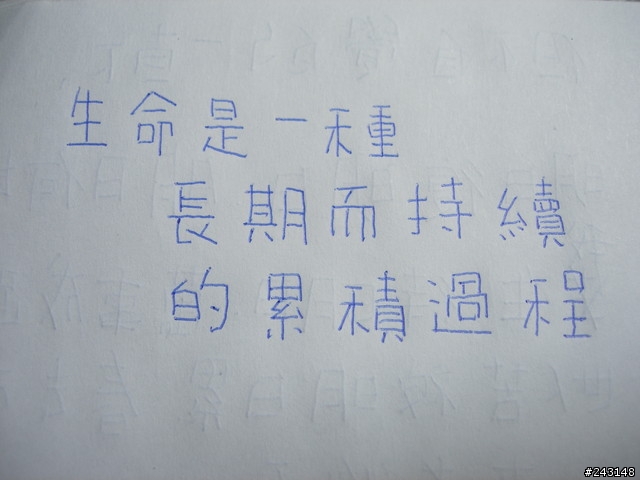 生命是一種
長期而持續
的累積過程
#243148